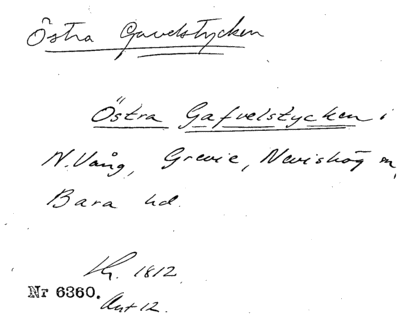 Östra Gavelstycken
Östra Gafvelstycken i
N. Vång, Grevie, Nevishög m,
Bara hd.
Kr. 1812
Nr 6360.
Akt 12.